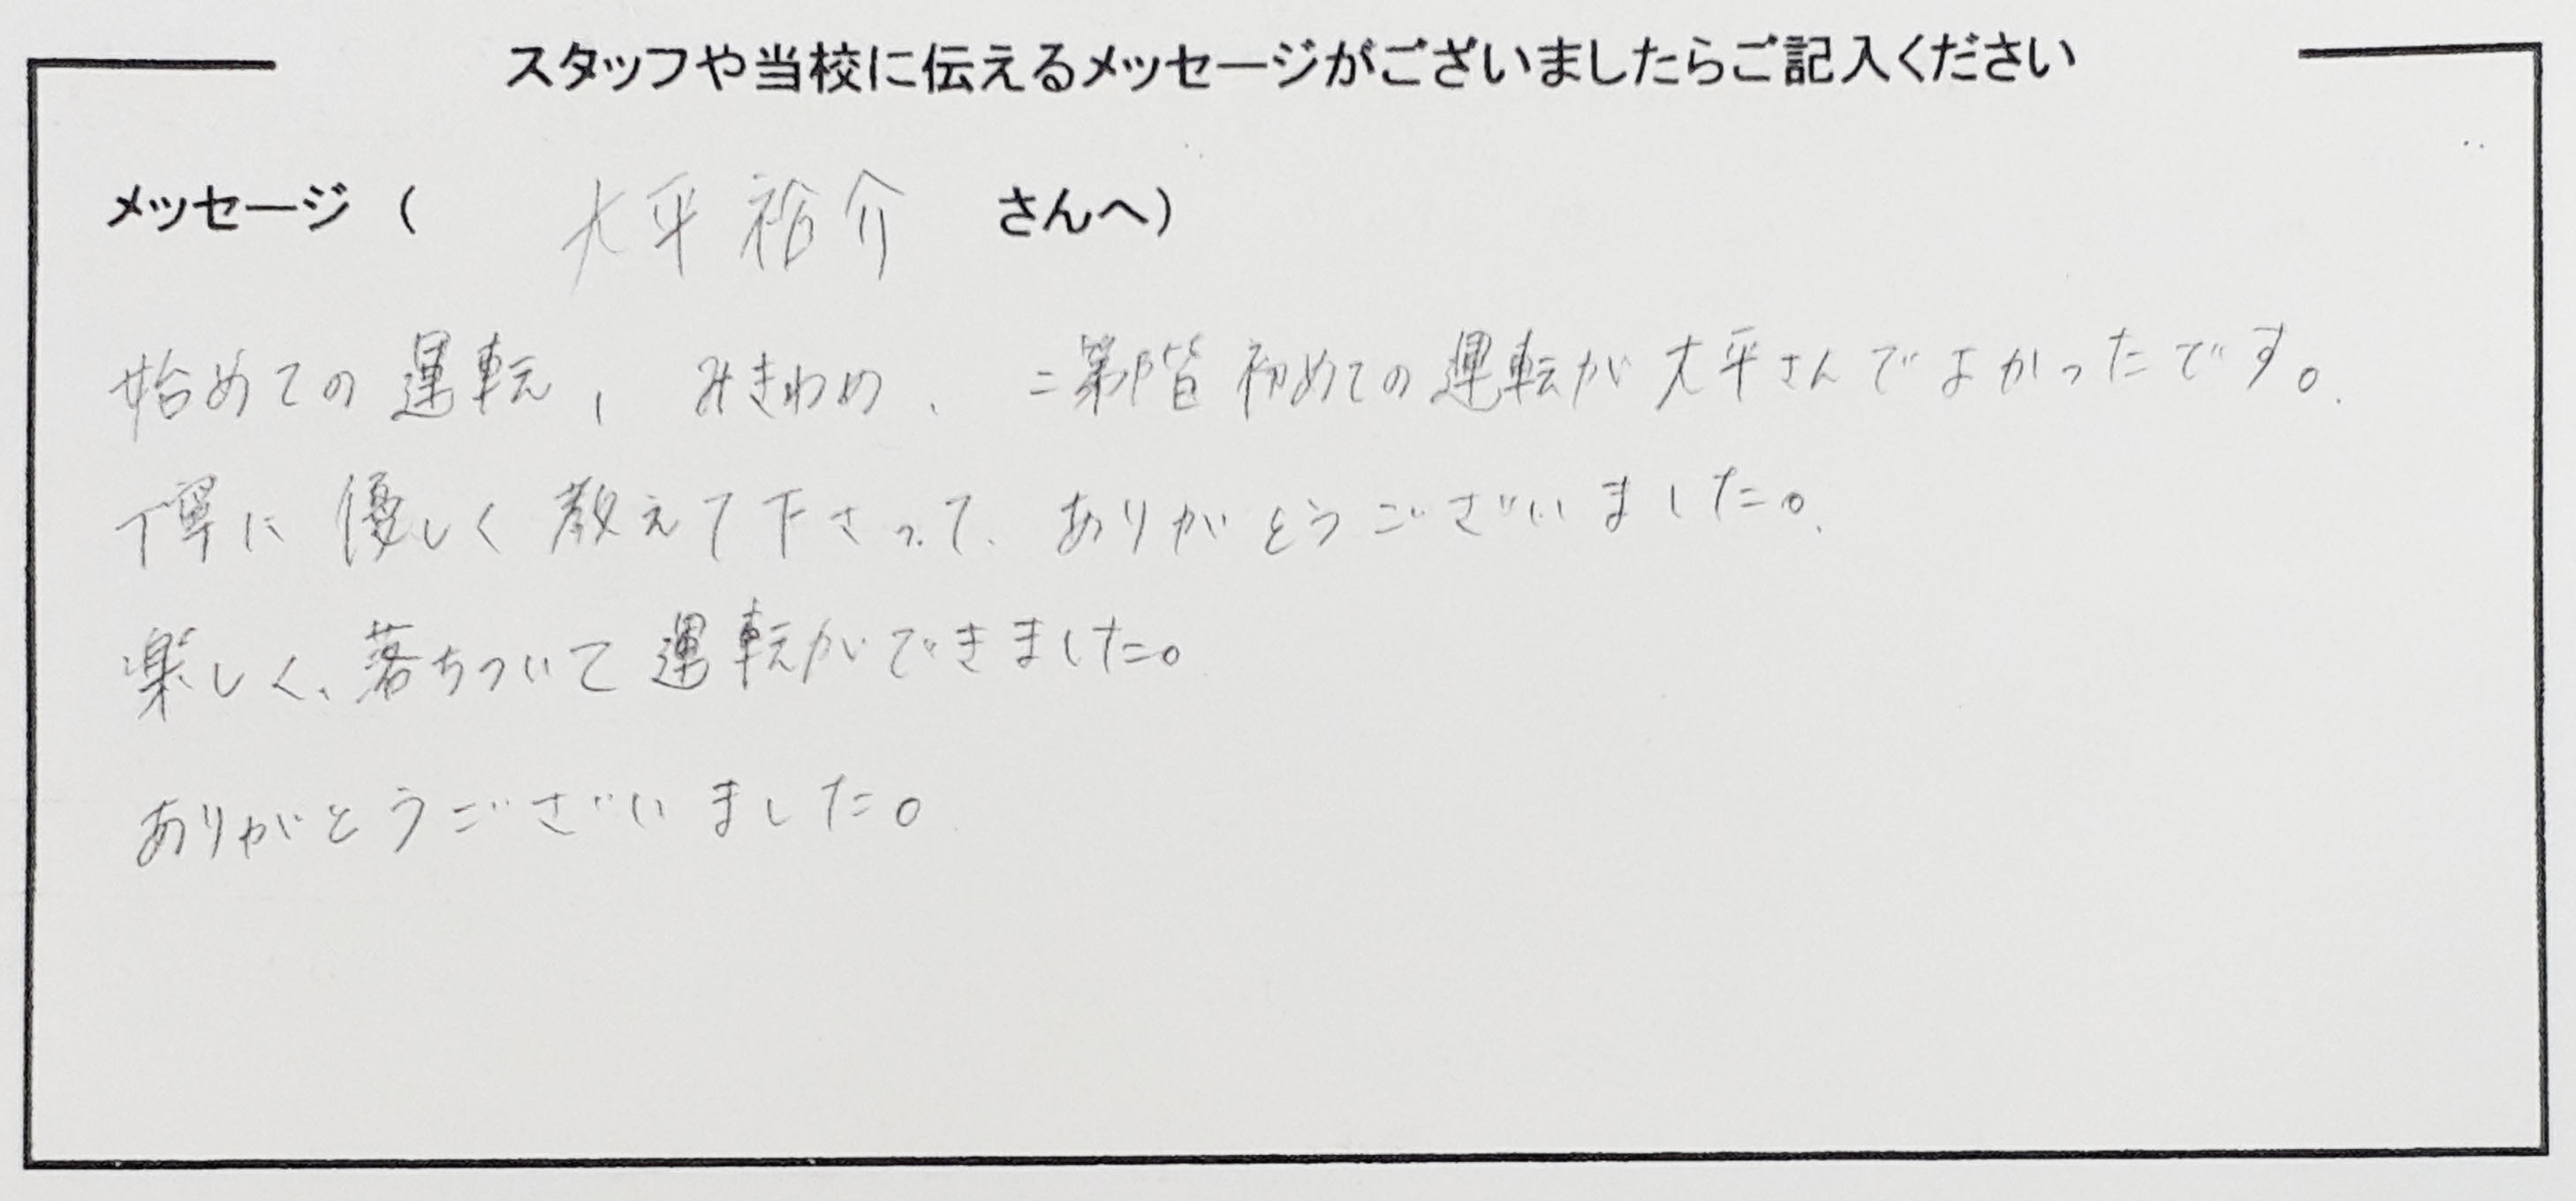 スタッフや当校に伝えるメッセージがございましたらご記入ください
メッセージ ( 大平 裕介 さんへ)
始めての運転, みきわめ、 二第階初めての運転が大平さんでよかったです。
丁寧に優しく教えて下さって、ありがとうございました。
楽しく、落ちついて運転ができました。
ありがとうございました。